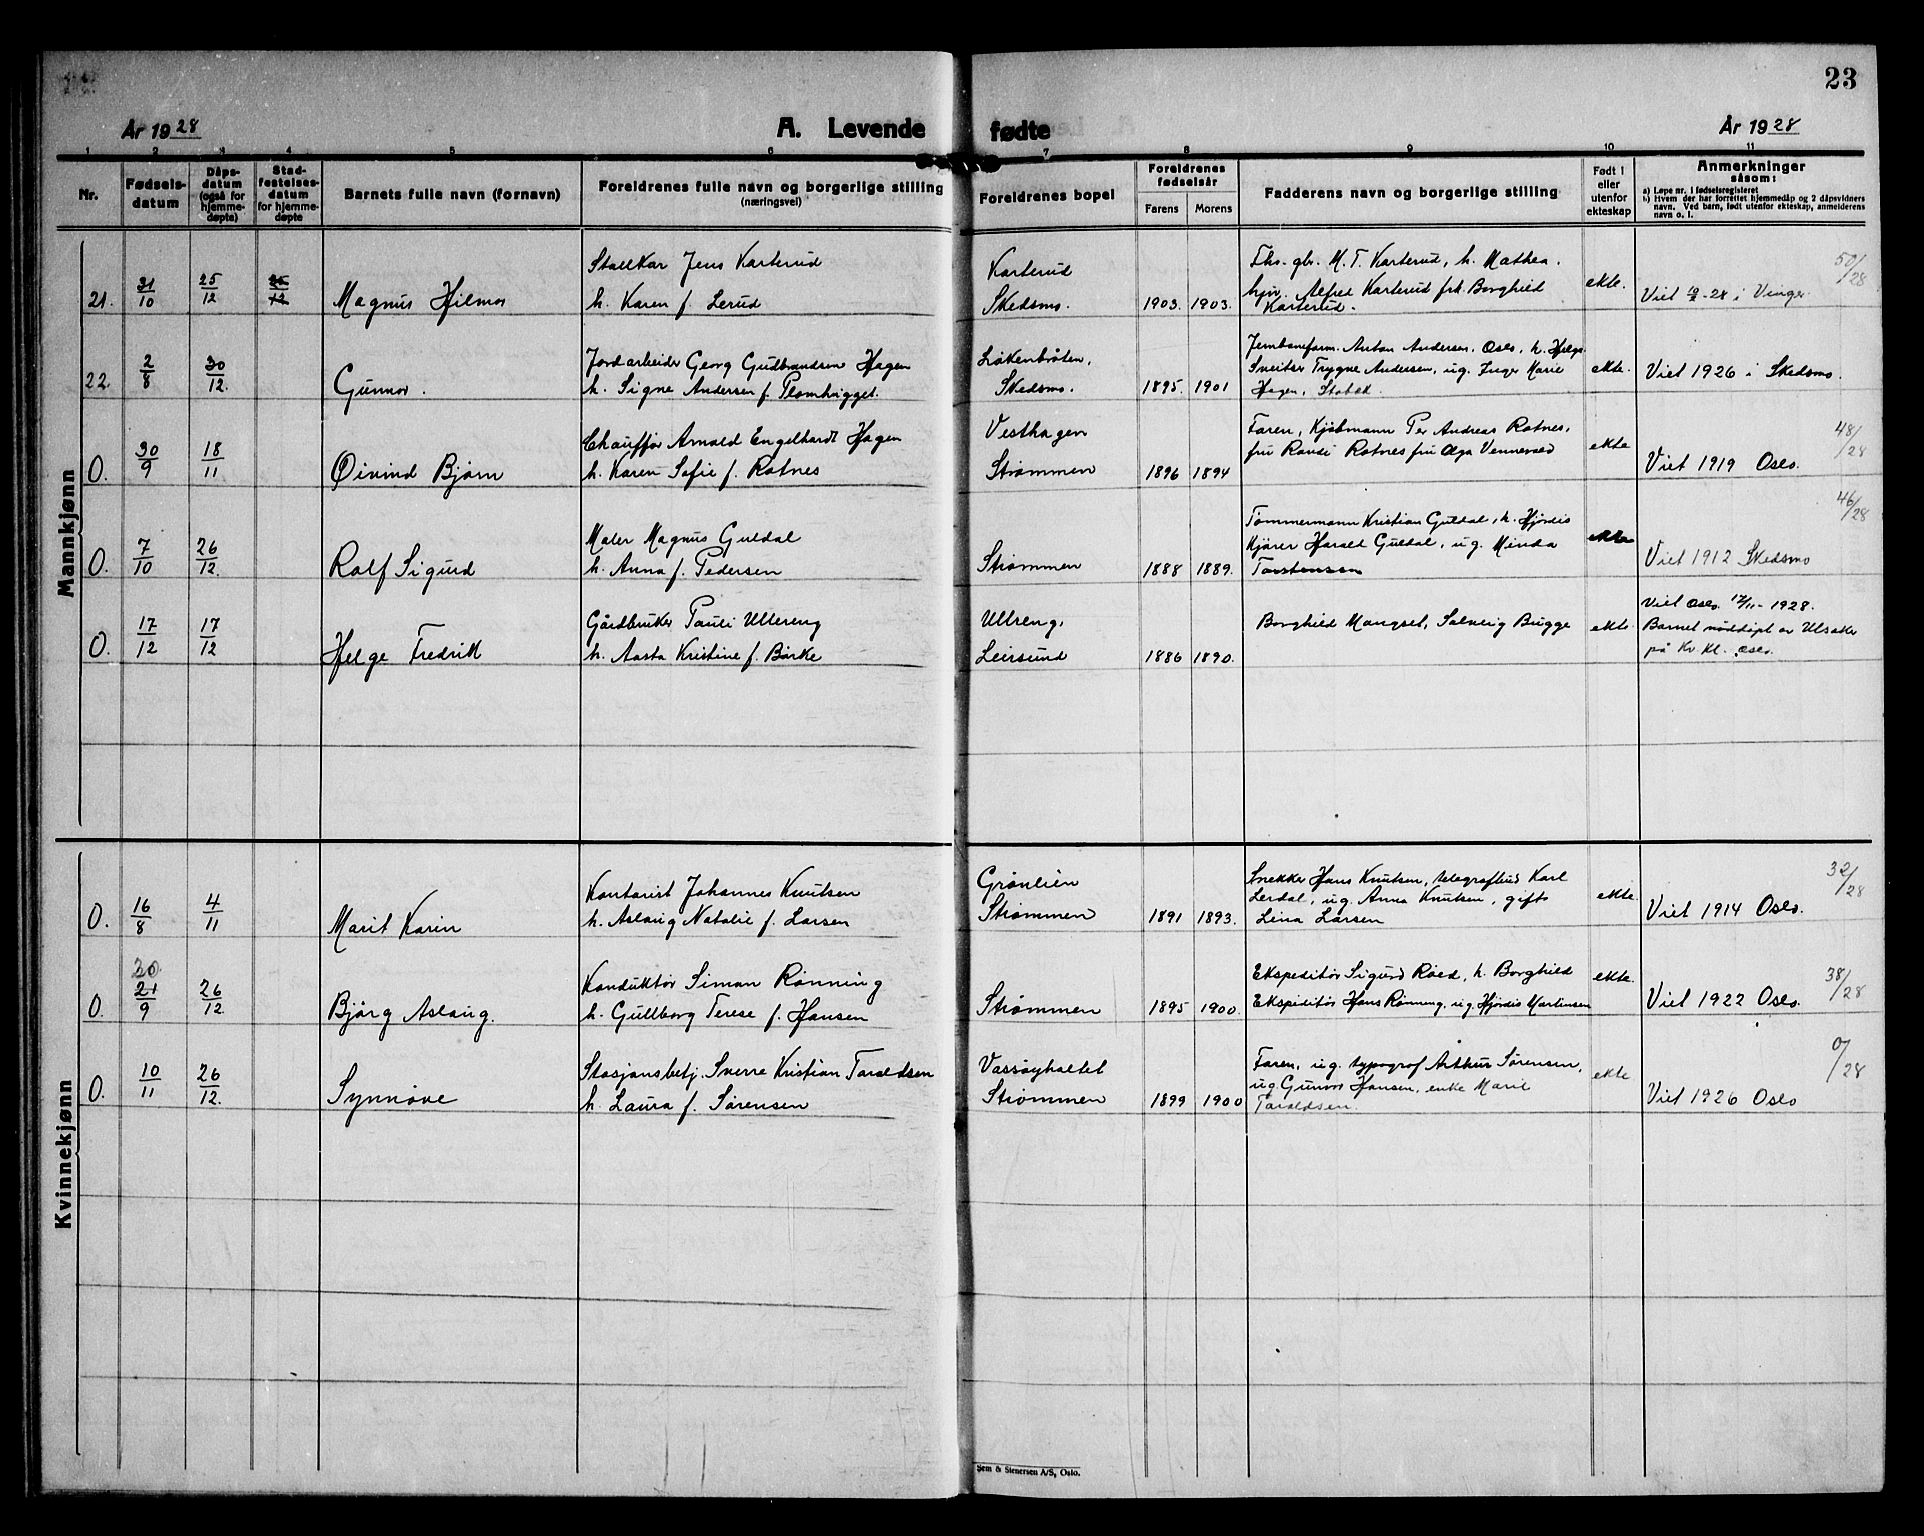 23
År 1928
A. Levende
fødte
År 1928
1 2 3 4 5 6 7 8 9 10 11
Nr.
Fødsels-
datum
Dåps-
datum
(også for
hjemme-
døpte)
Stad-
festelses-
datum
for hjemme-
døpte
Barnets fulle navn (fornavn)
Foreldrenes fulle navn og borgerlige stilling
(næringsvei)
Foreldrenes bopel
Foreldrenes
fødselsår
Farens
Morens
Fadderens navn og borgerlige stilling
Født i
eller
utenfor
ekteskap
Anmerkninger
såsom:
a) Løpe nr. i fødselsregisteret
b) Hvem der har forrettet hjemmedåp og 2 dåpsvidners
navn. Ved barn, født utenfor ekteskap, anmelderens
navn o. l.
Mannkjønn
21.
31/10
25/12
Magnus Hilmar
Stallkar Jens Karterud
h. Karen f. Lerud
Karterud
Skedsmo.
1903. 1903.
Fhv. gbr. M. T. Karterud, h. Mathea.
hjv. Alfred Karterud frk. Borghild
Karterud.
ekte.
Viet 19/2-28 i Vinger.
50/28
22.
2/8
30/12.
Gunnar.
Jordarbeider Georg Gudbrandsen Hagen
h. Signe Andersen f. Plomhugget.
Løkenbråten,
Skedsmo.
1895. 1901
Jernbaneform. Anton Andersen, Oslo, h. Helga
Sveitser Trygve Andersen, ug. Inger Marie
Hagen, Stabek.
ekte.
Viet 1926 i Skedsmo.
O.
30/9
18/11
Øivind Bjørn
Chauffør Arnold Engelhardt Hagen
h. Karen Sofie f. Rotnes
Vesthagen
Strømmen
1896 1894
Faren, Kjøbmann Per Andreas Rotnes,
fru Randi Rotnes fru Olga Vennevold
ekte
Viet 1919 Oslo.
48/28
O.
7/10
26/12.
Rolf Sigurd
Maler Magnus Guldal
h. Anna f. Pedersen
Strømmen
1888 1889.
Tømmermann Kristian Guldal, h. Hjørdis
Kjører Harald Guldal, ug. Minda
Torstensen
ekte
Viet 1912 Skedsmo
46/28
O.
17/12
17/12
Helge Fredrik
Gårdbruker Pauli Ullereng
h. Aasta Kristine f. Børke
Ullreng,
Leirsund
1886 1890.
Borghild Mangset, Solveig Brugge
ekte.
Viet Oslo 17/11-1928.
Barnet nøddøpt av Ulsaker
på Kv. Kl. Oslo.
Kvinnekjønn
O.
16/8
4/11
Marit Karin
Kontorist Johannes Knutsen
h. Aslaug Natalie f. Larsen
Grønlien
Strømmen
1891 1893.
Snekker Hans Knutsen, telegrafbud Karl
Lerdal, ug. Anna Knutsen, gift
Lina Larsen
ekte.
Viet 1914 Oslo.
32/28
O.
30
21/9
26/12.
Bjørg Aslaug.
Konduktør Simon Rønning
h. Gullborg Terese f. Hansen
Strømmen
1895 1900.
Ekspeditør Sigurd Røed, h. Borghild
Ekspeditør Hans Rønning, ug. Hjørdis Martinsen
ekte.
Viet 1922 Oslo.
38/28
O.
10/11
26/12.
Synnøve
Stasjonsbetj. Sverre Kristian Taraldsen
h. Laura f. Sørensen
Vassøyholtet
Strømmen
1899 1900
Faren, ug. typograf Arthur Sørensen,
ug. Gunvor Hansen, enke Marie
Taraldsen.
ekte
Viet 1926 Oslo
0/28
Sem & Stenersen A/S, Oslo.